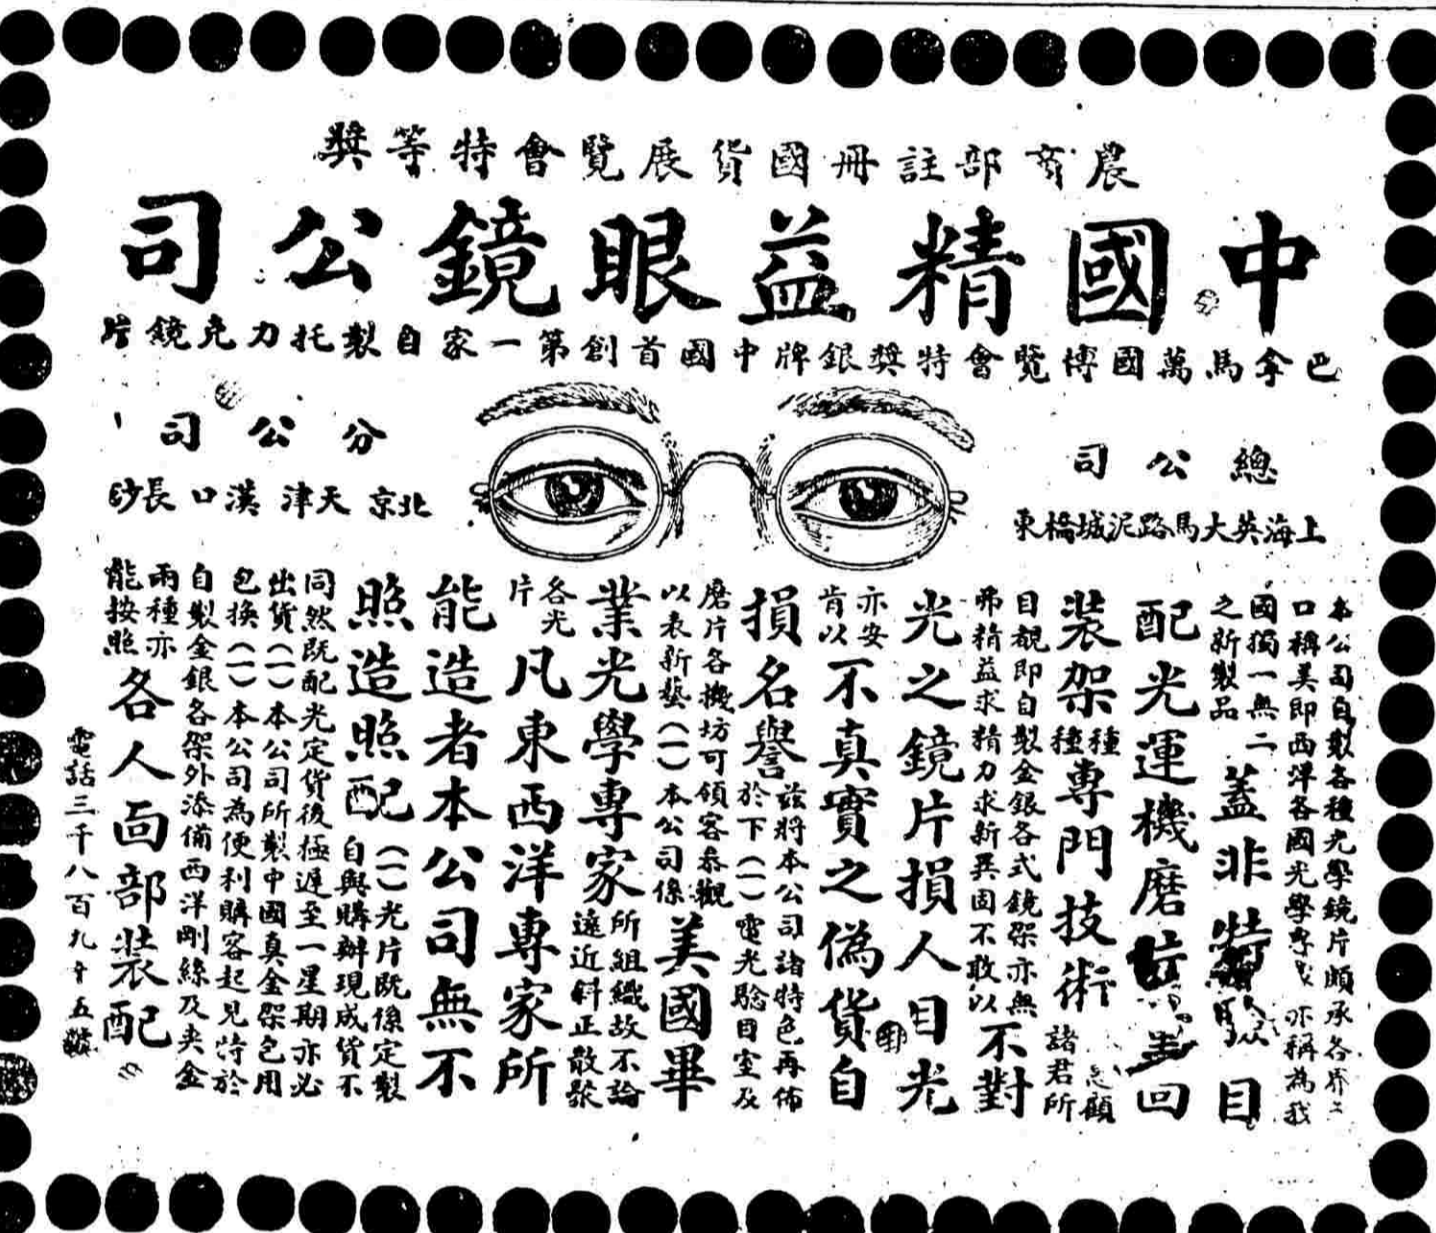 農商部註冊國貨展覽會特等獎
中國精益眼鏡公司
巴拿馬萬國博覽會特獎銀牌中國首創第一家自製托力克鏡片
總公司
上海英大馬路泥城橋東
分公司
北京天津漢口長沙
本公司自製各種光學鏡片頗承各界
口稱美即西洋各國光學專家亦稱為我
國獨一無二
之新製品
蓋非特 目
配光運機磨 回
裝架種種專門技術
諸君所
目覩即自製金銀各式鏡架亦無
弗精益求精力求新異固不敢以
不對
光之鏡片損人目光
亦安
肯以
不真實之偽貨自
損名譽
茲將本公司諸特色再佈
於下(一)電光驗目室及
磨片各機坊可領客參觀
以表新藝(一)本公司係
美國畢
業光學專家
所組織故不論
遠近斜正散
各光
片
凡東西洋專家所
能造者本公司無不
照造照配
(一)光片既係定製
自與購辦現成貨不
同然既配光定貨後極遲至一星期亦必
出貨(一)本公司所製中國真金架包用
包換(一)本公司為便利購客起見特於
自製金銀各架外添備西洋剛絲及夾金
兩種亦
能按照
各人面部裝配
電話三千八百九十五號